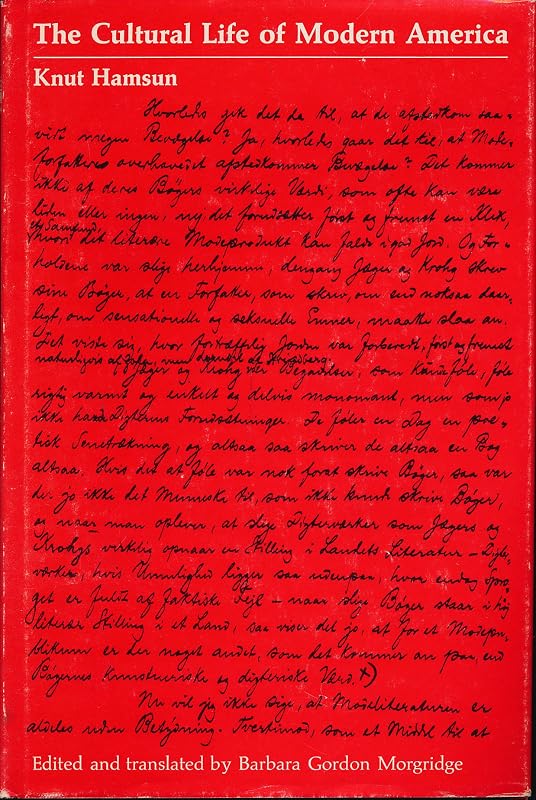 The Cultural Life of Modern America
Knut Hamsun
Hvorledes gik det da til, at de afstedkom saa-
vidt megen Bevægelse? Ja, hvorledes gaar det til, at Mode-
forfattere overhovedet afstedkommer Bevægelse? Det kommer
ikke af deres Bøgers virkelige Værdi, som ofte kan være
liden eller ingen, nej det forudsætter først og fremst en Klex
af Samfund,
hvori det literære Modeprodukt kan falde i god Jord. Og For-
holdene var slige herhjemme, dengang Jæger og Krohg skrev
sine Bøger, at en Forfatter, som skrev, om end noksaa daar-
ligt, om sensationelle og seksuelle Emner, maatte slaa an.
Det viste sig, hvor fortræffelig Jorden var forberedt, først og fremst
naturligvis af Zola, men dernæst af Strindberg.
Jæger og Krohg var Begavelser, som kunde føle, føle
rigtig varmt og enkelt og delvis monomant, men som jo
ikke havde Digterens Forudsætninger. De føler en Dag en poe-
tisk Svedtrækning, og altsaa saa skriver de altsaa en Bog
altsaa. Hvis det at føle var nok forat skrive Bøger, saa var
der jo ikke det Menneske til, som ikke kunde skrive Bøger,
og naar man oplever, at slige Digterværker som Jægers og
Krohgs virkelig opnaar en Stilling i Landets Literatur – Digter-
værker, hvis Umulighed ligger saa udenpaa, hvor endog Spro-
get er fuldt af faktiske Fejl – naar slige Bøger staar i høj
literær Stilling i et Land, saa viser det jo, at for et Modepu-
blikum er der noget andet, som det kommer an paa, end
Bøgernes kunstneriske og digteriske Værd. +)
Nu vil jeg ikke sige, at Modeliteraturen er
aldeles uden Betydning. Tvertimod, som et Middel til at
Edited and translated by Barbara Gordon Morgridge